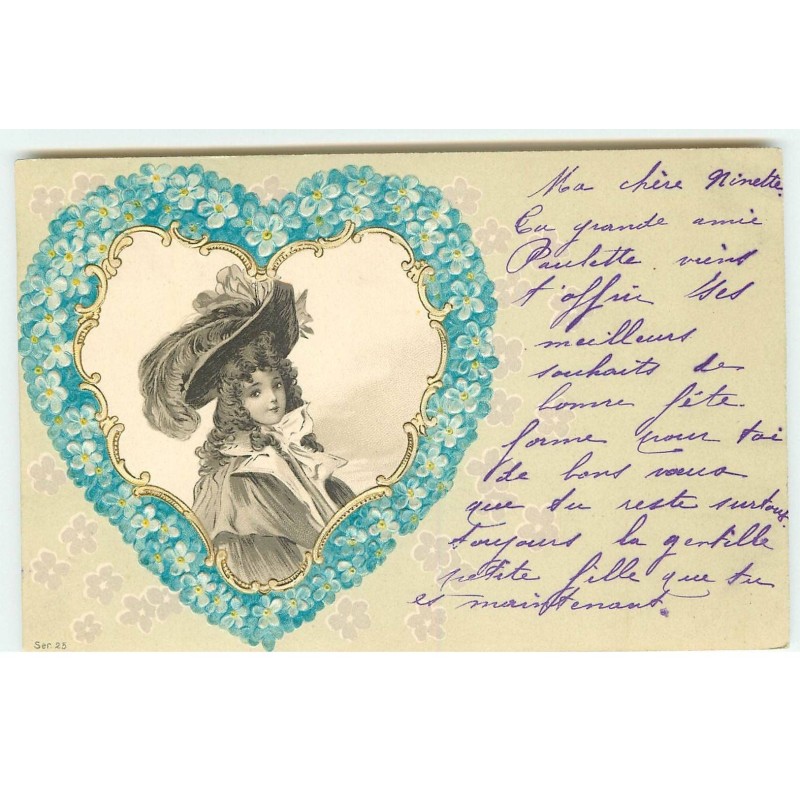 Ma chère Ninette.
Ta grande amie
Paulette viens
t'offrir ses
meilleurs
souhaits de
bonne fête.
forme pour toi
de bons vœux
que tu reste surtout
toujours la gentille
petite fille que tu
es maintenant.
Ser. 23